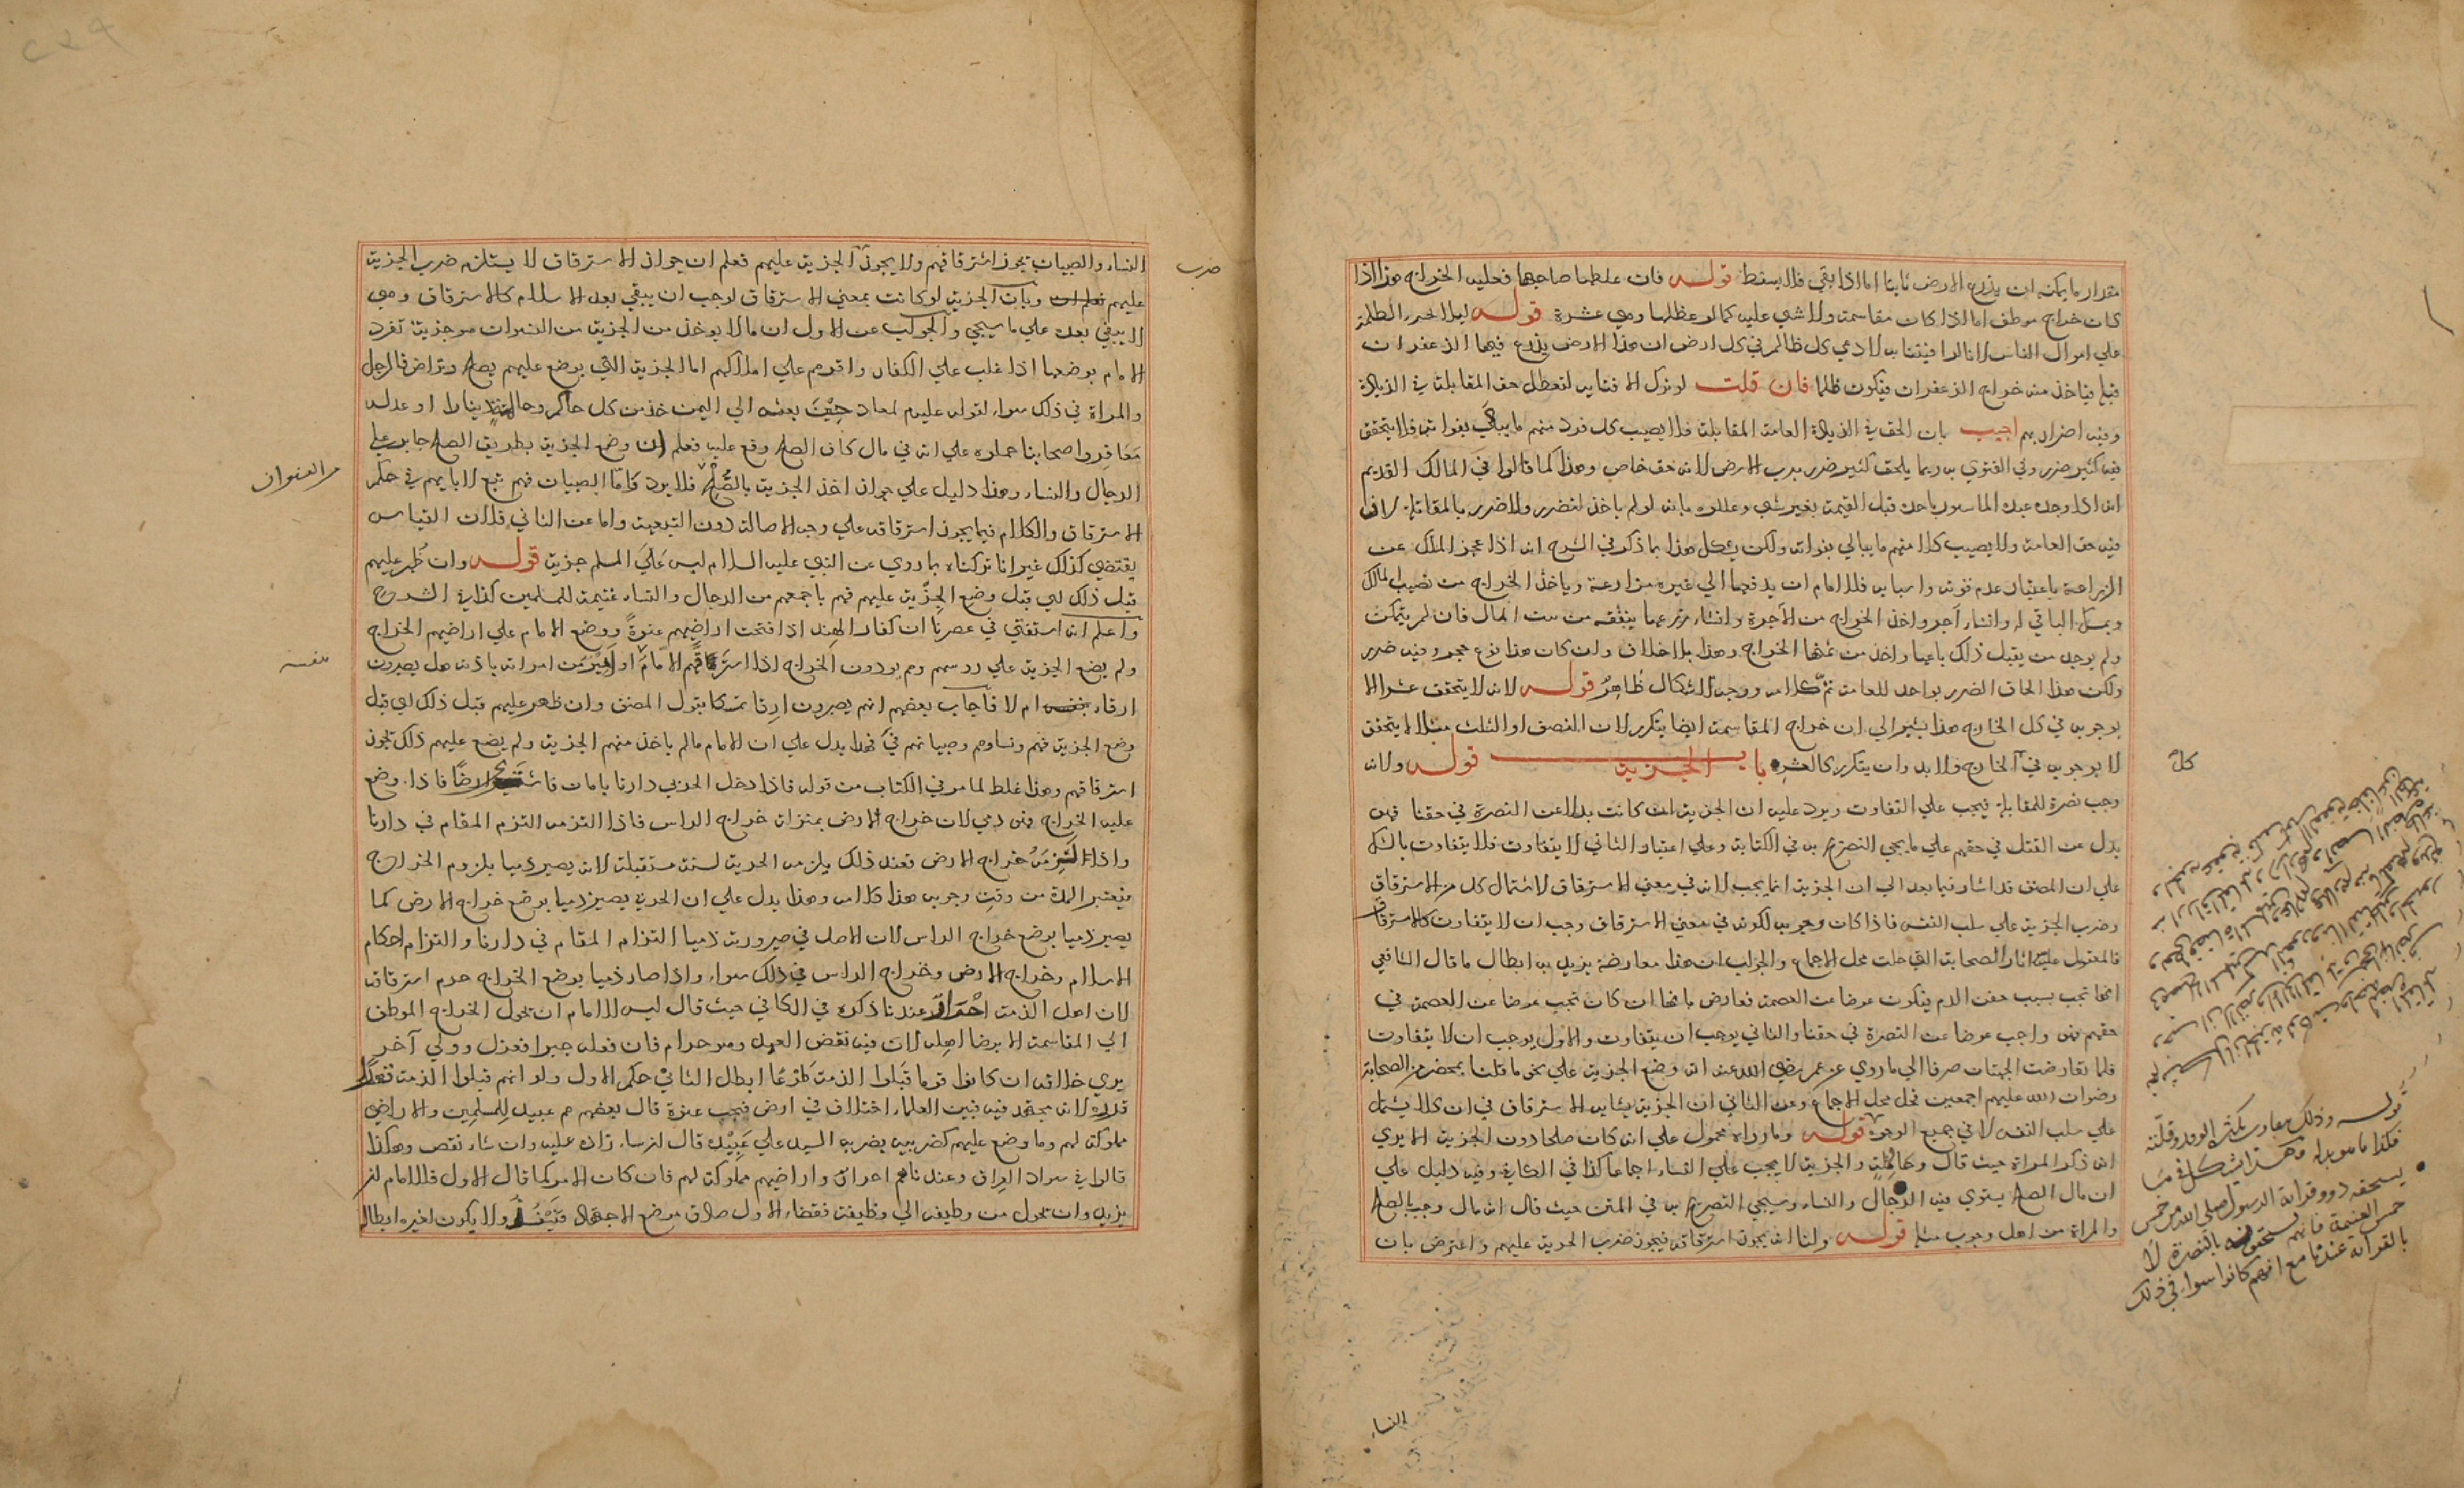 مقدار ما يمكنه ان يزرع الارض ثانيا اما اذا بقي فلا يسقط قوله فان عطلها صاحبها فعليه الخراج هذا اذا
كان خراج موظف اما اذا كان مقاسمة ولا شي عليه كما لو عطلها وهي عشرة قوله ليلا الظلمة
علي اموال الناس لانا لو افتينا به لادعي كل ظالم في كل ارض ان هذا الارض يزرع فيها الزعفران
قبله فياخذ منه خراج الزعفران فيكون ظلما فان قلت لو ترك الافتا به لتعطل حق المقابلة في الزيادة
وفيه اضرار بهم اجيب بان الحق في الزيادة لعامة المقابلة فلا يصيب كل فرد منهم ما يبالي بفواته فلا يتحقق
فيه كثير ضرر وفي الفتوي به ربما يلحق كثير ضرر برب الارض لانه حق خاص وهذا كما قالوا في المالك القديم
انه اذا وجد عبده الماسور ياخذه قبل القيمة بغير شي وعللوه بانه لو لم ياخذ لتضرر ولا ضرر بالمقاتلة لان
فيه حق العامة ولا يصيب كلا منهم ما يبالي بفواته ولكن يشكل هذا بما ذكر في الشرح انه اذا عجز المالك عن
الزراعة باعتبار عدم قوته واسبابه فللامام ان يدفعها الي غيره مزارعة وياخذ الخراج من نصيب المالك
ويمسك الباقي له وان شاء آجر واخذ الخراج من الآجرة وان شاء زرعها ينفقه من بيت المال فان لم يتمكن
ولم يوجد من يقبل ذلك باعها واخذ من ثمنها الخراج وهذا بلا خلاف وان كان هذا نوع حجر وفيه ضرر
ولكن هذا الحاق الضرر بواحد للعامة تم كلامه ووجه الاشكال ظاهر قوله لانه لا يتحقق عشرا الا
بوجوبه في كل الخارج هذا يشير الي ان خراج المقاسمة ايضا يتكرر لان النصف او الثلث مثلا لا يتحقق
الا بوجوبه في الخارج فلا بد وان يتكرر كالعشر باب الجزية قوله ولانه
كل
وجب نصرة للمقابلة فيجب علي التفاوت ويرد عليه ان الجزية ان كانت بدلا عن النصرة في حقنا فهي
بدل عن القتل في حقهم علي ما يجي التصريح به في الكتاب وعلي اعتبار الثاني لا يتفاوت فلا يتفاوت بالشك
علي ان المصنف قد اشار فيما بعد الي ان الجزية انما يجب لانه في معني الاسترقاق لاشتمال كل من الاسترقاق
وضرب الجزية علي سلب النفس فاذا كان وجوبه لكونه في معني الاسترقاق وجب ان لا يتفاوت كالاسترقاق
فالمعول عليه اثار الصحابة التي حلت محل الاجماع والجواب ان هذا معارضة يريد به ابطال ما قال الشافعي
انها تجب بسبب حقن الدم فيكون عوضا عن العصمة فعارض بانها ان كان تجب عوضا عن العصمة في
حقهم فهي واجب عوضا عن النصرة في حقنا والثاني يوجب ان يتفاوت والاول يوجب ان لا يتفاوت
فلما تعارضت الجهتان صرفنا الي ما روي عن عمر رضي الله عنه انه وضع الجزية علي نحو ما قلنا بمحضر من الصحابة
رضوان الله عليهم اجمعين فحل محل الاجماع وعن الثاني ان الجزية يشابه الاسترقاق في ان كلا يشمل
علي سلب النفس لا في جميع الوجوه قوله وما رواه محمول علي انه كان صلحا دون الجزية الا يري
انه ذكر المراة حيث قال وحالمة والجزية لا يجب علي النساء اجماعا كذا في الكافي وفيه دليل علي
ان مال الصلح يستوي فيه الرجال والنساء وسيجي التصريح به في المتن حيث قال انه مال وجب بالصلح
والمراة من اهل وجوب مثله قوله ولنا انه يجوز استرقاقه فيجوز ضرب الجزية عليهم واعترض بان
النساء
قوله وذلك يتفاوت بكثرة الوفر وقلته
فكذا ما هو بدله هذا يشكل في ما
يستحقه ذوو قرابة الرسول صلي الله من خمس
خمس الغنيمة فانهم يستحقونه بالنصرة لا
بالقرابة عندنا مع انهم كانوا سواء في ذلك
النساء والصبيان يجوز استرقاقهم ولا يجوز الجزية عليهم فعلم ان جواز الاسترقاق لا يستلزم ضرب الجزية
ضرب
عليهم وبان الجزية لو كانت بمعني الاسترقاق لوجب ان يبقي بعد الاسلام كالاسترقاق وهي
لا يبقي بعده علي ما سيجي والجواب عن الاول ان ما لا يوخذ من الجزية من النسوان هو جزية تفرد
الامام بوضعها اذا غلب علي الكفار واقرهم علي املاكهم اما الجزية التي يوضع عليهم بصلح وتراض فالرجل
والمراة في ذلك سواء لقوله عليه لمعاد حيث بعثه الي اليمن خذ من كل حالم وحالمة دينارا او عدله
معافر واصحابنا حملوه علي انه في مال كان الصلح وقع عليه فعلم ان وضع الجزية بطريق الصلح جايز علي
الرجال والنساء وهذا دليل علي جواز اخذ الجزية بالصلح فلا يرد واما الصبيان فهم تبع لابايهم في حكم
من النسوان
الاسترقاق والكلام فيما يجوز استرقاقه علي وجه الاصالة دون التبعية واما عن الثاني فلان القياس
يقتضي كذلك غير انا تركناه بما روي عن النبي عليه السلام ليس علي المسلم جزية قوله وان ظهر عليهم
قبل ذلك اي قبل وضع الجزية عليهم فهم باجمعهم من الرجال والنساء غنيمة للمسلمين كذا في الشروح
واعلم انه استفتي في عصرنا ان كفار الهند اذا فتحت اراضيهم عنوة ووضع الامام علي اراضيهم الخراج
ولم يضع الجزية علي روسهم وهم يودون الخراج اذا استرقهم الامام او امير من امرائه باذنه هل يصيرون
نفسه
ارقاء ام لا فاجاب بعضهم انهم يصيرون ارقاء تمسكا بقول المصنف وان ظهر عليهم قبل ذلك اي قبل
وضع الجزية فهم ونساوهم وصبيانهم في فهذا يدل علي ان الامام ما لم ياخذ منهم الجزية ولم يضع عليهم ذلك يجوز
استرقاقهم وهذا غلط لما مر في الكتاب من قوله فاذا دخل الحربي دارنا بامان فاشتري ارضا فاذا وضع
عليه الخراج فهو ذمي لان خراج الارض بمنزلة خراج الراس فاذا التزمه التزم المقام في دارنا
واذا التزم خراج الارض فعند ذلك يلزمه الجزية لسنة مستقبلة لانه يصير ذميا بلزوم الخراج
فيعتبر المدة من وقت وجوبه هذا كلامه وهذا يدل علي ان الحربي يصير ذميا بوضع خراج الارض كما
يصير ذميا بوضع خراج الراس لان الاصل في صيرورته ذميا التزام المقام في دارنا والتزام احكام
الاسلام وخراج الارض وخراج الراس في ذلك سواء واذا صار ذميا بوضع الخراج حرم استرقاقه
لان اهل الذمة احرار عندنا ذكره في الكافي حيث قال ليس للامام ان يحول الخراج الموظف
الي المقاسمة الا برضا اهله لان فيه نقض العهد وهو حرام فان فعله جبرا فعزل وولي آخر
يري خلافه ان كانوا قوما قبلوا الذمة طوعا ابطل الثاني حكم الاول ولو انهم قبلوا الذمة
قدره لانه مجتهد فيه فبين العلماء اختلاف في ارض فتحت عنوة قال بعضهم هم عبيد للمسلمين والاراضي
مملوكة لهم وما وضع عليهم كضريبة يضربه السيد علي عبيده قال ان شاء زاد عليه وان شاء نقص وهكذا
قالوا في سواد العراق وعندنا هم احرار واراضيهم مملوكة لهم فان كان الامر كما قال الاول فللامام ان
يزيد وان يحول من وظيفة الي وظيفة فقضاء الاول صادف موضع الاجتهاد فينفذ ولا يكون لغيره ابطاله